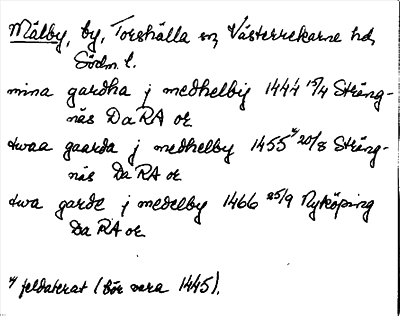 Mälby, by, Torshälla sn, Västerrekarne hd,
Södm. l.
mina gardha j medhelbig 1444 15/4 Sträng-
näs DaRA or
twaa gaarda j medhelby 1455 x/ 20/8 Sträng-
näs DaRA or
twa garde j medelby 1466 25/9 Nyköping
DaRA or
x/ feldaterat (bör vara 1445).